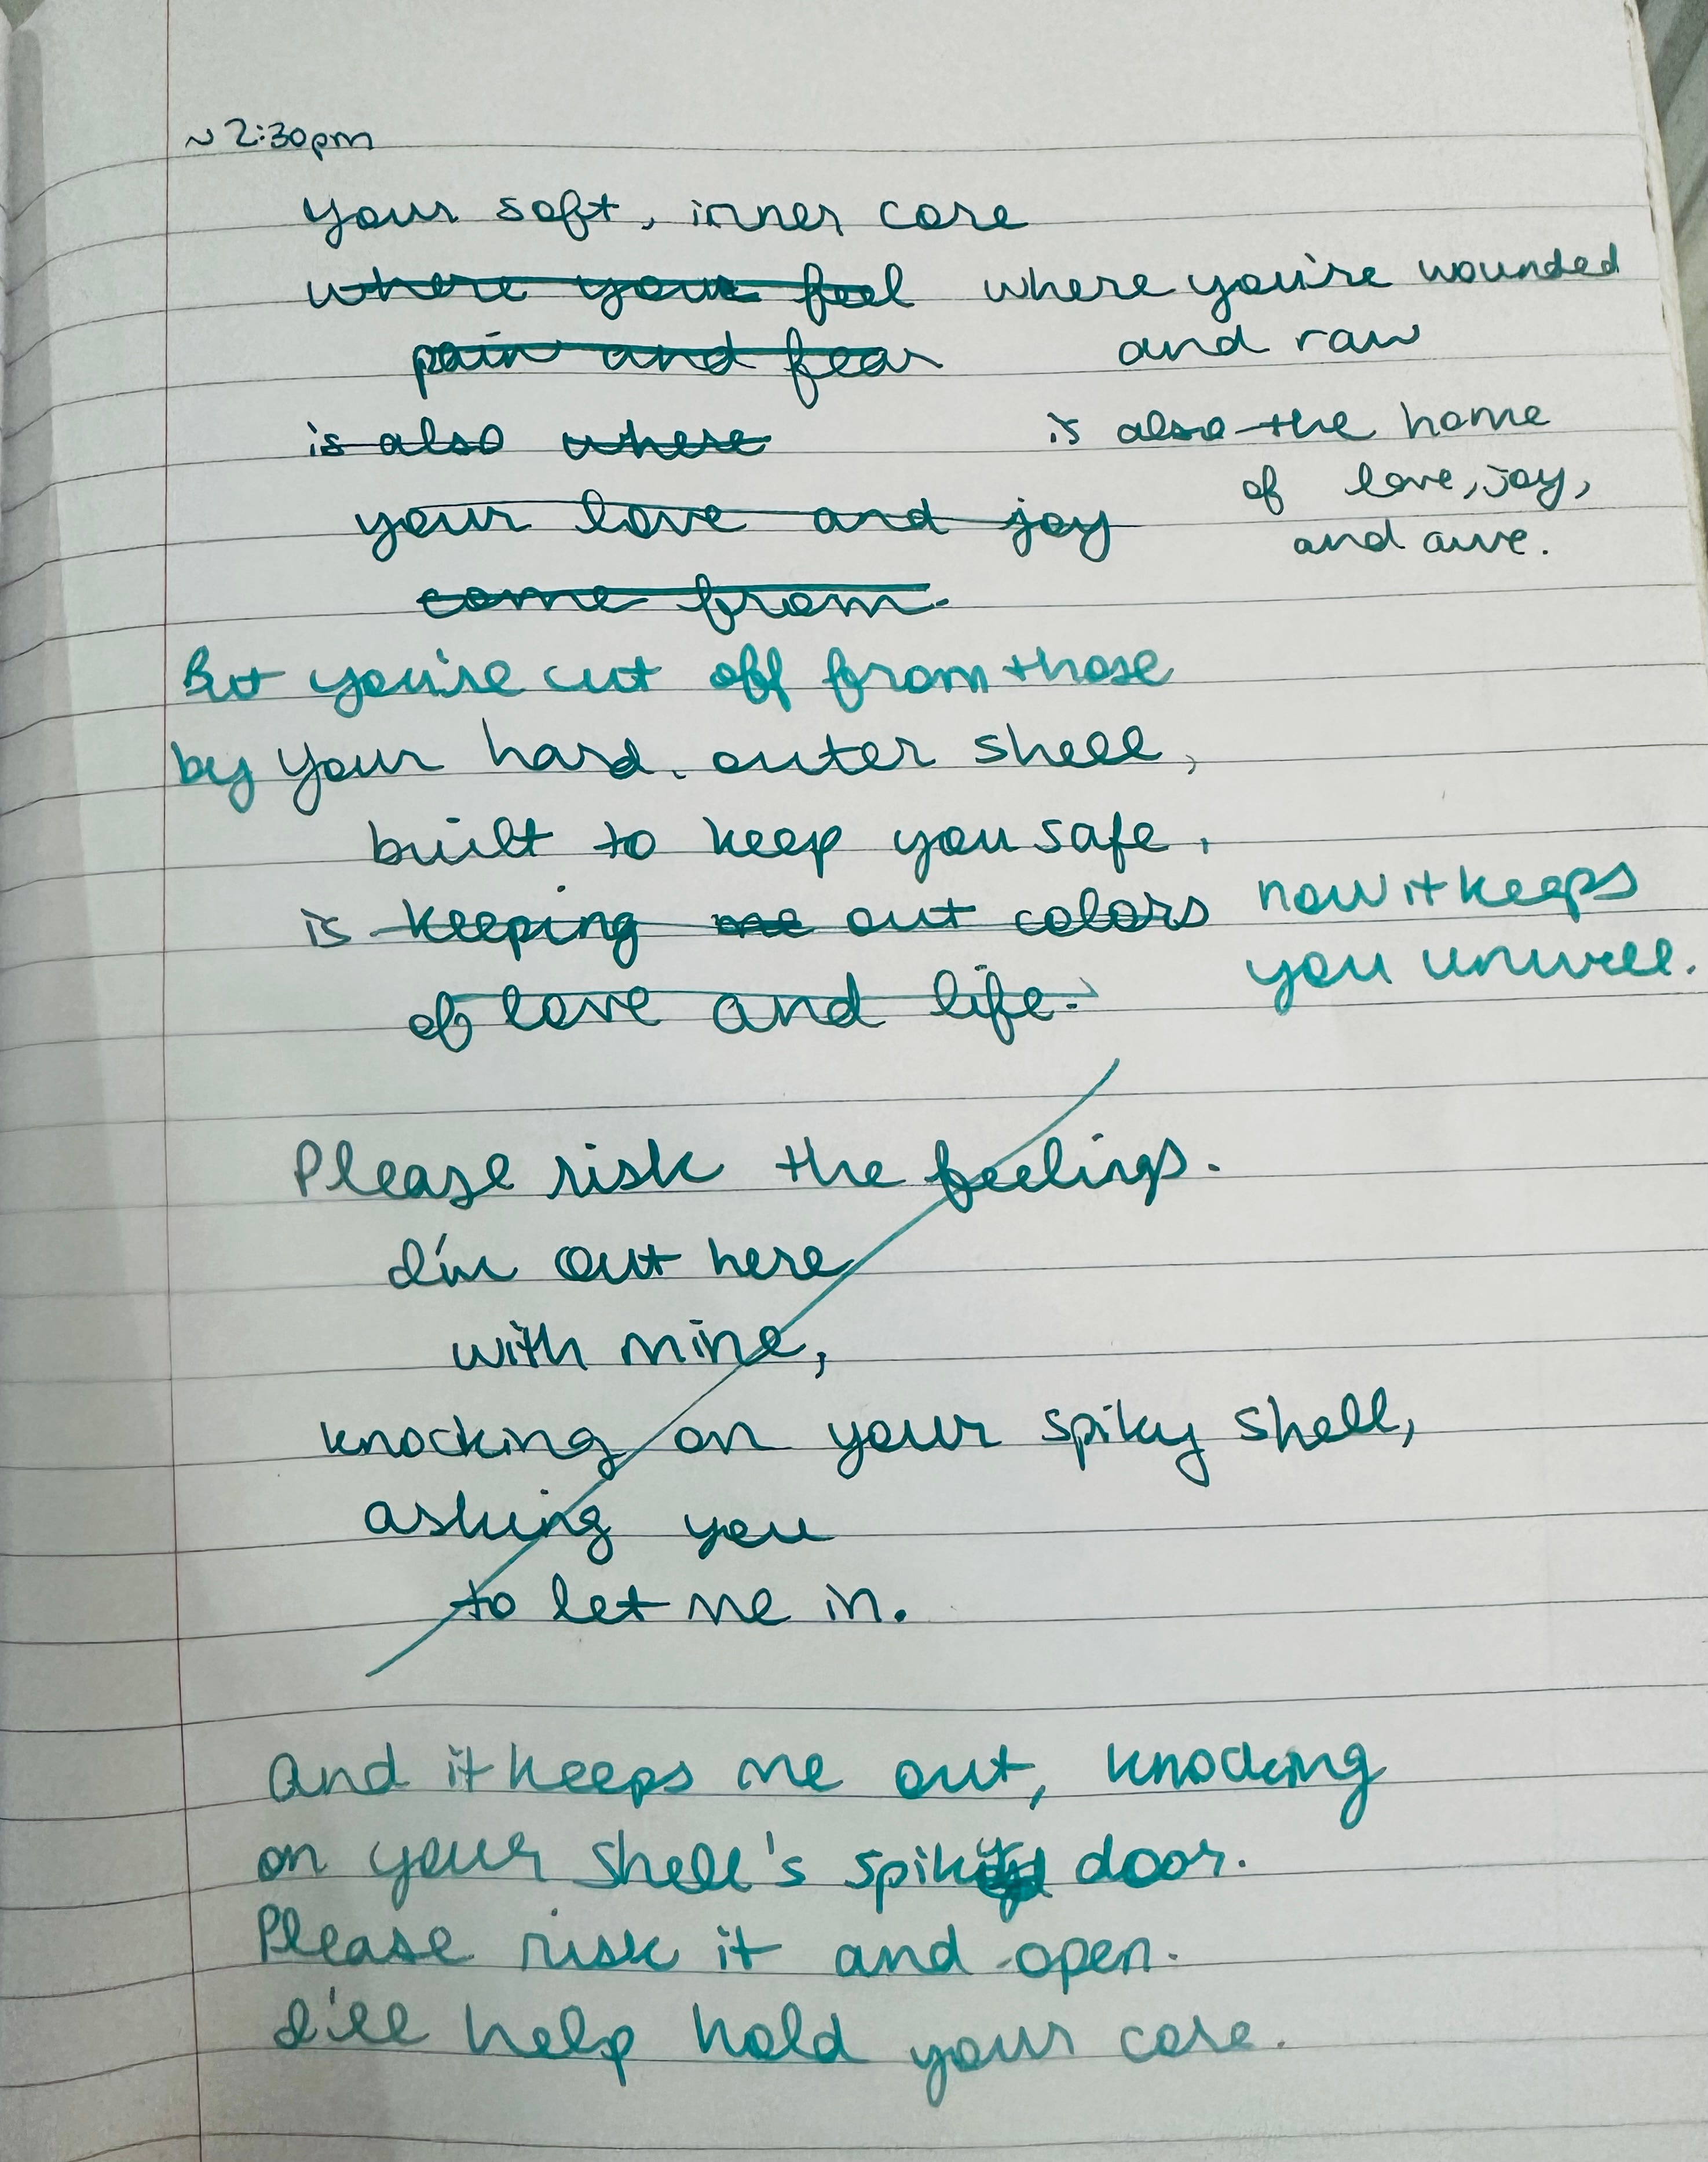 ~ 2:30pm
your soft, inner core
where you feel where you're wounded
pain and fear and raw
is also where is also the home
your love and joy of love, joy,
come from. and awe.
But you're cut off from those
by your hard, outer shell,
built to keep you safe,
is keeping me out colors now it keeps
of love and life. you unwell.
Please risk the feelings.
I'm out here
with mine,
knocking on your spiky shell,
asking you
to let me in.
And it keeps me out, knocking
on your shell's door.
Please risk it and open.
I'll help hold your core.